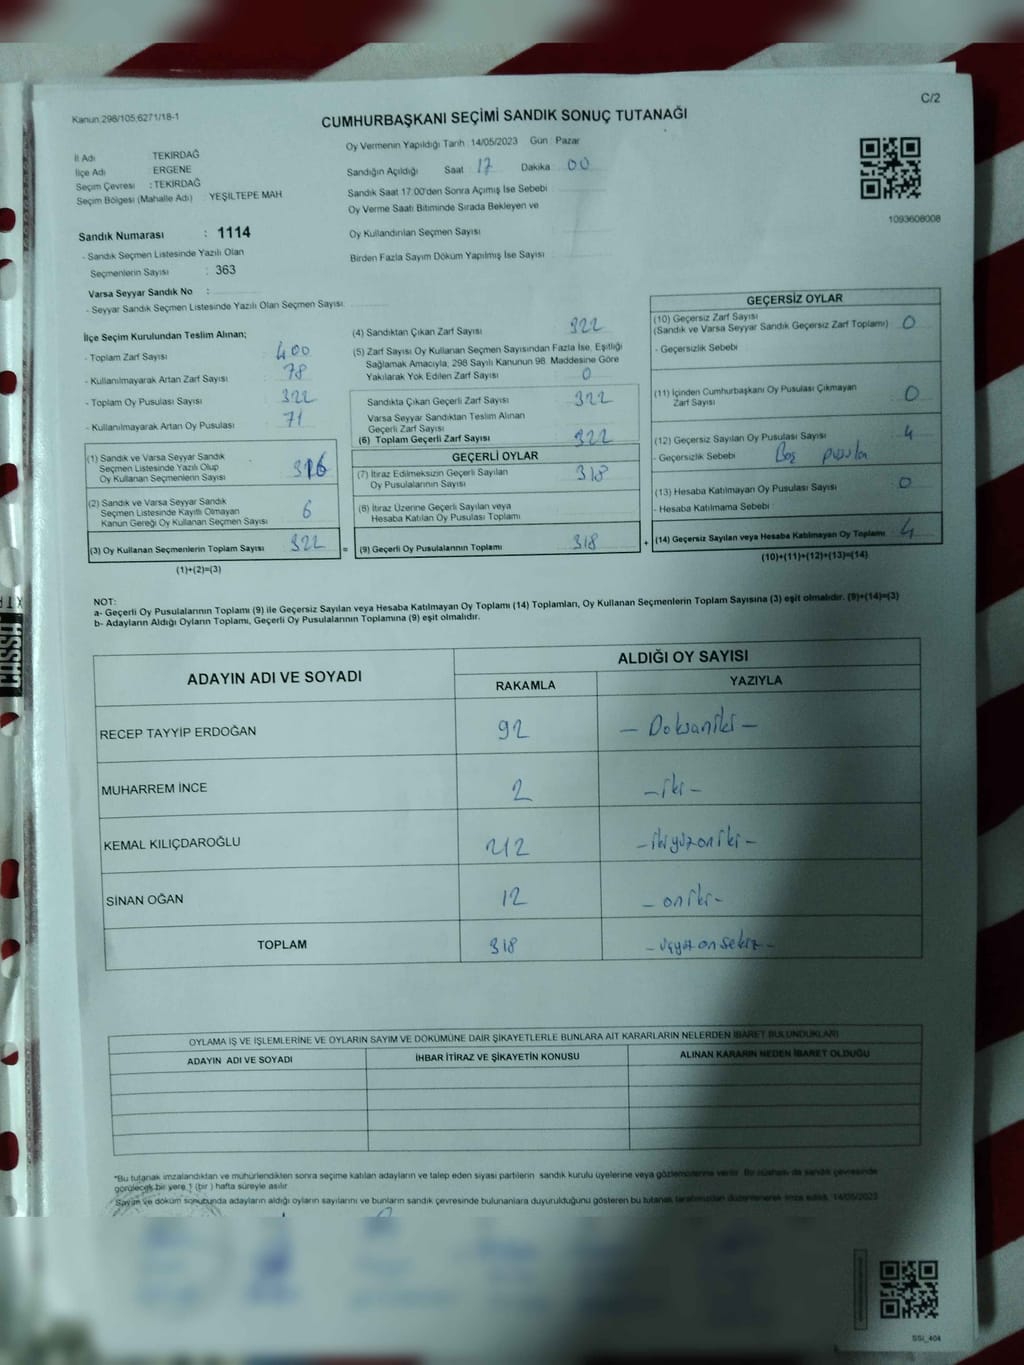 C/2
Kanun 298/105;6271/18-1
CUMHURBAŞKANI SEÇİMİ SANDIK SONUÇ TUTANAĞI
İl Adı TEKİRDAĞ
İlçe Adı ERGENE
Seçim Çevresi : TEKİRDAĞ
Seçim Bölgesi (Mahalle Adı) YEŞİLTEPE MAH
Sandık Numarası : 1114
- Sandık Seçmen Listesinde Yazılı Olan
Seçmenlerin Sayısı : 363
Varsa Seyyar Sandık No :
- Seyyar Sandık Seçmen Listesinde Yazılı Olan Seçmen Sayısı:
Oy Vermenin Yapıldığı Tarih : 14/05/2023 Gün : Pazar
Sandığın Açıldığı Saat 17 Dakika 00
Sandık Saat 17:00'den Sonra Açımış İse Sebebi
Oy Verme Saati Bitiminde Sırada Bekleyen ve
Oy Kullandırılan Seçmen Sayısı
Birden Fazla Sayım Döküm Yapılmış İse Sayısı
1093608008
İlçe Seçim Kurulundan Teslim Alınan;
- Toplam Zarf Sayısı : 400
- Kullanılmayarak Artan Zarf Sayısı : 78
- Toplam Oy Pusulası Sayısı : 322
- Kullanılmayarak Artan Oy Pusulası : 71
(1) Sandık ve Varsa Seyyar Sandık
Seçmen Listesinde Yazılı Olup
Oy Kullanan Seçmenlerin Sayısı 316
(2) Sandık ve Varsa Seyyar Sandık
Seçmen Listesinde Kayıtlı Olmayan
Kanun Gereği Oy Kullanan Seçmen Sayısı 6
(3) Oy Kullanan Seçmenlerin Toplam Sayısı 322
(1)+(2)=(3)
(4) Sandıktan Çıkan Zarf Sayısı 322
(5) Zarf Sayısı Oy Kullanan Seçmen Sayısından Fazla İse, Eşitliği
Sağlamak Amacıyla, 298 Sayılı Kanunun 98. Maddesine Göre
Yakılarak Yok Edilen Zarf Sayısı 0
Sandıkta Çıkan Geçerli Zarf Sayısı 322
Varsa Seyyar Sandıktan Teslim Alınan
Geçerli Zarf Sayısı
(6) Toplam Geçerli Zarf Sayısı 322
GEÇERLİ OYLAR
(7) İtiraz Edilmeksizin Geçerli Sayılan
Oy Pusulalarının Sayısı 318
(8) İtiraz Üzerine Geçerli Sayılan veya
Hesaba Katılan Oy Pusulası Toplamı
= (9) Geçerli Oy Pusulalarının Toplamı 318
GEÇERSİZ OYLAR
(10) Geçersiz Zarf Sayısı
(Sandık ve Varsa Seyyar Sandık Geçersiz Zarf Toplamı) 0
- Geçersizlik Sebebi
(11) İçinden Cumhurbaşkanı Oy Pusulası Çıkmayan
Zarf Sayısı 0
(12) Geçersiz Sayılan Oy Pusulası Sayısı 4
- Geçersizlik Sebebi Boş pusula
(13) Hesaba Katılmayan Oy Pusulası Sayısı 0
- Hesaba Katılmama Sebebi
+ (14) Geçersiz Sayılan veya Hesaba Katılmayan Oy Toplamı 4
(10)+(11)+(12)+(13)=(14)
NOT:
a- Geçerli Oy Pusulalarının Toplamı (9) ile Geçersiz Sayılan veya Hesaba Katılmayan Oy Toplamı (14) Toplamları, Oy Kullanan Seçmenlerin Toplam Sayısına (3) eşit olmalıdır. (9)+(14)=(3)
b- Adayların Aldığı Oyların Toplamı, Geçerli Oy Pusulalarının Toplamına (9) eşit olmalıdır.
ADAYIN ADI VE SOYADI ALDIĞI OY SAYISI
RAKAMLA YAZIYLA
RECEP TAYYİP ERDOĞAN 92 - Doksaniki -
MUHARREM İNCE 2 - iki -
KEMAL KILIÇDAROĞLU 212 - ikiyüzoniki -
SİNAN OĞAN 12 - oniki -
TOPLAM 318 - üçyüzonsekiz -
OYLAMA İŞ VE İŞLEMLERİNE VE OYLARIN SAYIM VE DÖKÜMÜNE DAİR ŞİKAYETLERLE BUNLARA AİT KARARLARIN NELERDEN İBARET BULUNDUKLARI
ADAYIN ADI VE SOYADI İHBAR İTİRAZ VE ŞİKAYETİN KONUSU ALINAN KARARIN NEDEN İBARET OLDUĞU
*Bu tutanak imzalandıktan ve mühürlendikten sonra seçime katılan adayların ve talep eden siyasi partilerin sandık kurulu üyelerine veya gözlemcilerine verilir. Bir nüshası da sandık çevresinde
görülecek bir yere 1 (bir) hafta süreyle asılır.
Sayım ve döküm sonucunda adayların aldığı oyların sayılarını ve bunların sandık çevresinde bulunanlara duyurulduğunu gösteren bu tutanak tarafımızdan düzenlenerek imza edildi. 14/05/2023
CASSA
SSİ_404